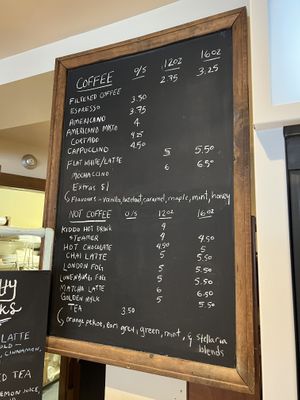 COFFEE O/S 12OZ 16OZ
FILTERED COFFEE 2.75 3.25
ESPRESSO 3.50
AMERICANO 3.75
AMERICANO MISTO 4
CORTADO 4.25
CAPPUCCINO 4.50
FLAT WHITE/LATTE 5 5.50
MOCHACCINO 6 6.50
Extras $1
Flavours - vanilla, hazelnut, caramel, maple, mint, honey
NOT COFFEE O/S 12OZ 16OZ
KIDDO HOT DRINK 4
STEAMER 4 4.50
HOT CHOCOLATE 4.50 5
CHAI LATTE 5 5.50
LONDON FOG 5 5.50
FOG 5 5.50
MATCHA LATTE 6 6.50
GOLDEN MYLK 5 5.50
TEA 3.50
orange pekoe, earl grey, green, mint, & Stellaria
blends
LATTE
CINNAMON,
TEA
LEMON JUICE,